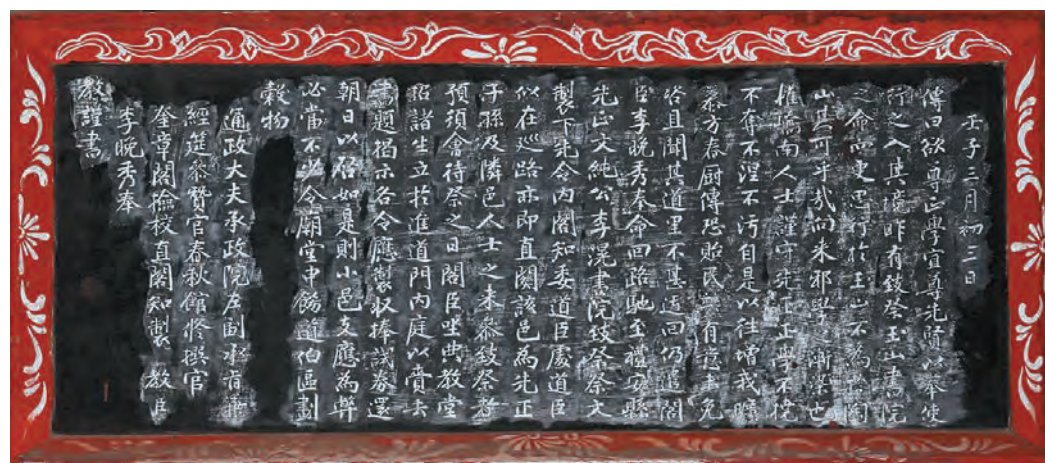 壬子三月初三日
傳曰欲尊正學宜尊先賢以奉使
行之入其境昨有致祭玉山書院
之命而更思行於玉山不為陶
山其可乎哉向來邪學漸染也
惟嶠南人士謹守先正正學不撓
不奪不涅不污自是以往增我曠
慕方春廚傳恐貽民弊有意未免
咨且聞其道里不甚迂回仍送閣
臣李晚秀奉命回路馳至禮安縣
先正文純公李滉書院致祭祭文
製下先令內閣知委道臣處道臣
似在巡路亦即直關該邑為先正
子孫及隣邑人士之來叅致祭者
預須會待祭之日閣臣坐典教堂
招諸生立於進道門內庭以賫去
書題揭示各令應製収捧試券還
朝日以啓如是則小邑支應為弊
必當不少令廟堂申飭道伯區劃
穀物
通政大夫承政院左副承旨兼
經筵叅贊官春秋館修撰官
奎章閣檢校直閣知製 教臣
李晚秀奉
教謹書